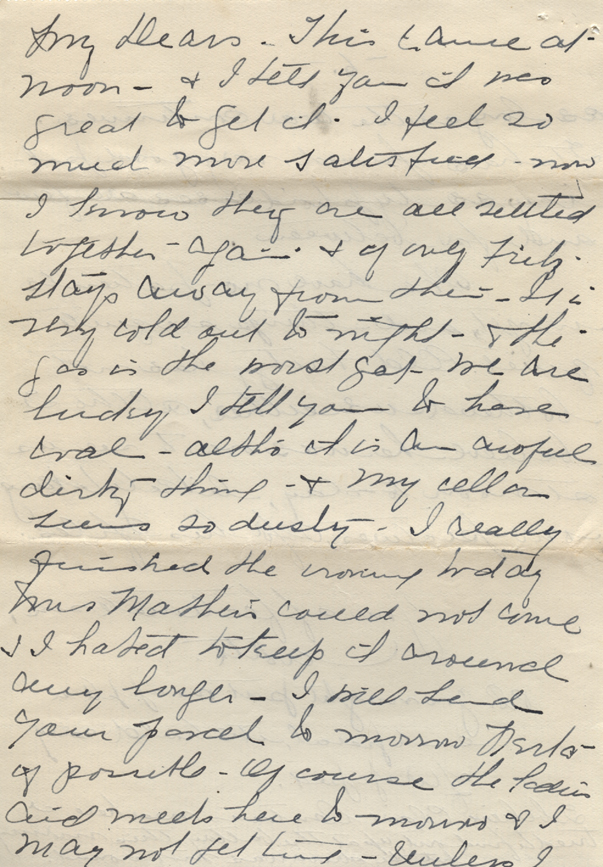 My Dears - This came at
noon - & I tell you it was
great to get it. I feel so
much more satisfied - now
I know they are all settled
together again & if only Fritz
stays away from them - It is
very cold out to night - & the
gas is the worst yet - we are
lucky I tell you to have
coal - altho it is an awful
dirty thing - & my cellar
seems so dusty - I really
finished the ironing today
Mrs Mathews could not come
& I hated to keep it around
any longer - I will send
your parcel to morrow
if possible - Of course the Ladies
Aid meets here to-morrow & I
may not get time - Unless I